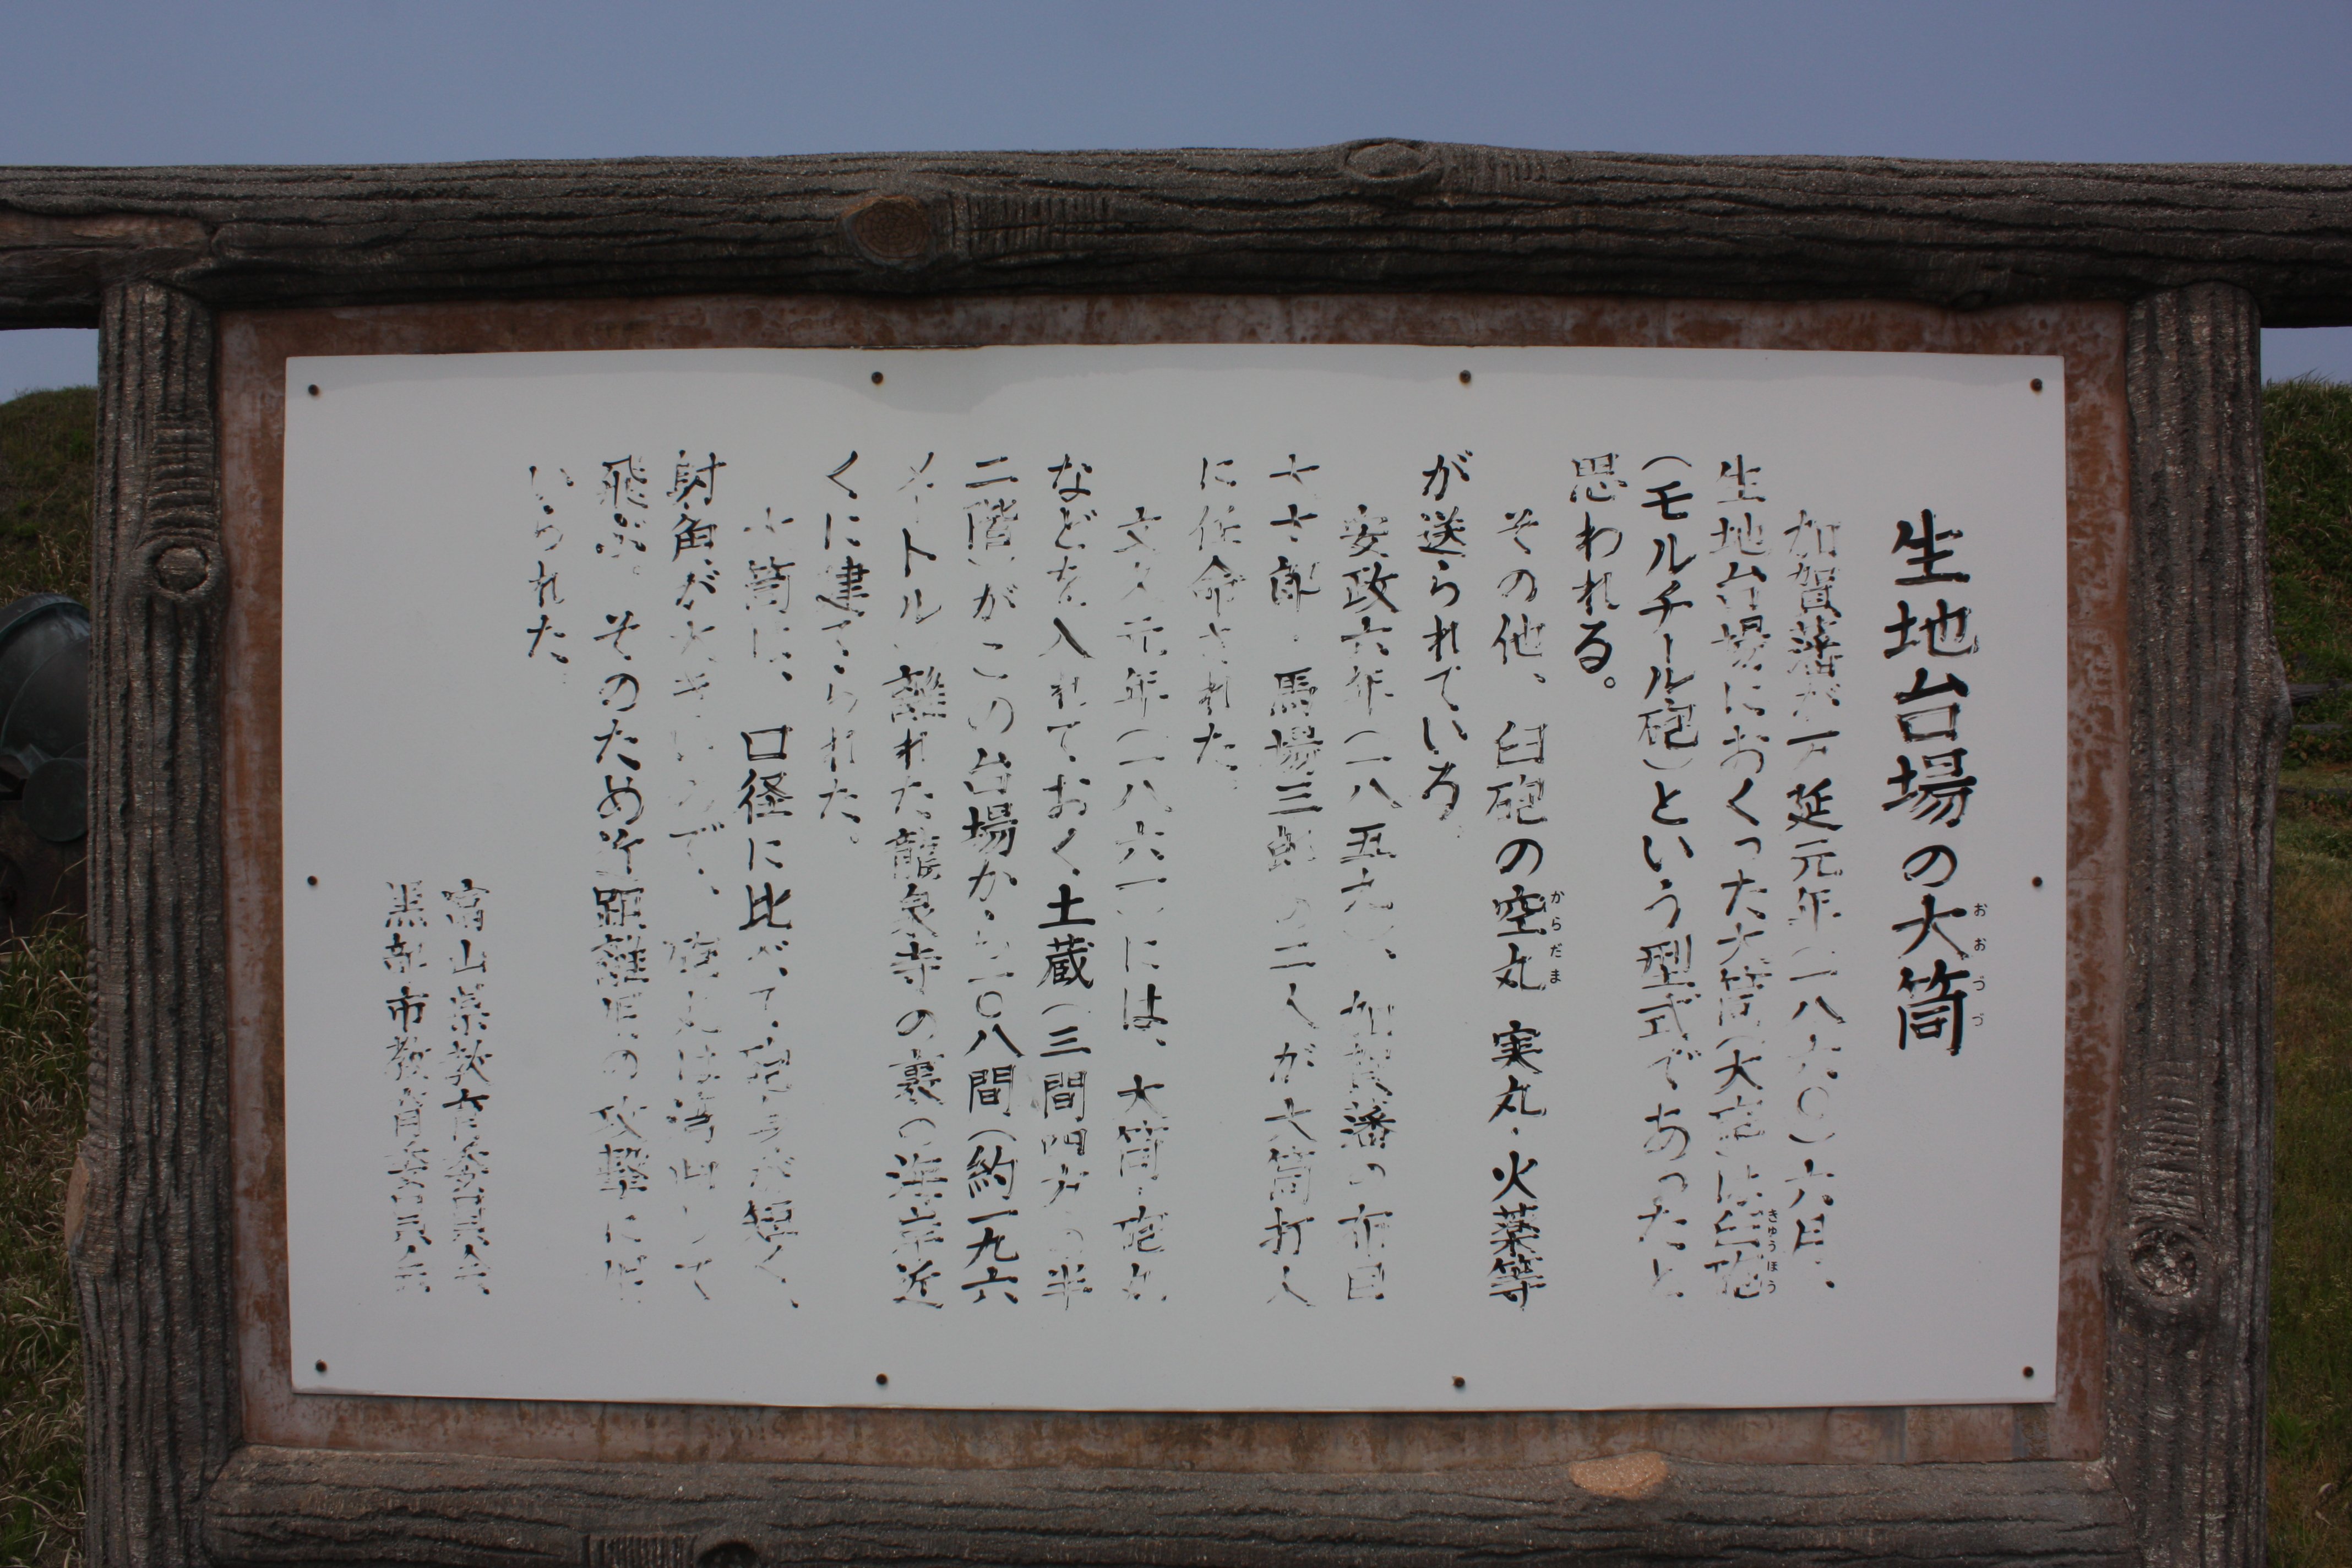 生地台場の大筒
おおづつ
加賀藩が万延元年(一八六〇)六月、
生地台場におくった大筒(大砲)は臼砲
きゅうほう
(モルチール砲)という型式であったと
思われる。
その他、臼砲の空丸・実丸・火薬等
からだま
が送られている。
安政六年(一八五九)、加賀藩の布目
十十郎・馬場三郎の二人が大筒打人
に任命された。
文久元年(一八六一)には、大筒・砲丸
などを入れておく土蔵(三間四方の半
二階)がこの台場から一〇八間(約一九六
メートル)離れた龍泉寺の裏の海岸近
くに建てられた。
大筒は、口径に比べて砲身が短く、
射角が大きいので、砲丸は湾曲して
飛ぶ。そのため近距離用の攻撃に用
いられた。
富山県教育委員会
黒部市教育委員会